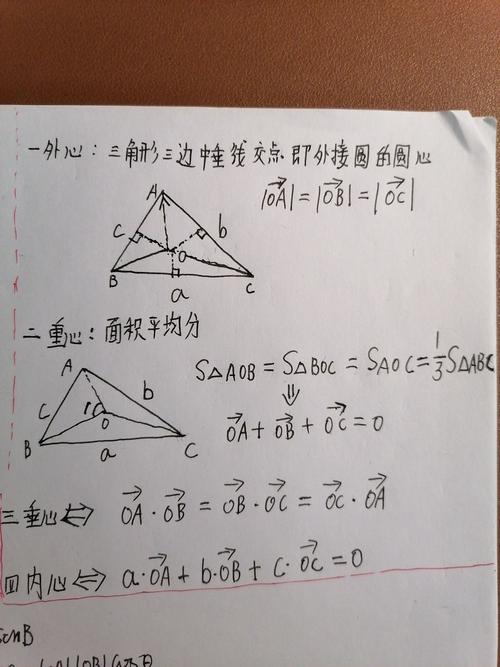 一外心：三角形三边中垂线交点即外接圆的圆心
|OA⃗| = |OB⃗| = |OC⃗|
A
c
b
O
B
a
C
二重心：面积平均分
A
S△AOB = S△BOC = SAOC = 1/3 S△ABC
⇓
c
b
O
OA⃗ + OB⃗ + OC⃗ = 0
B
a
C
三垂心⇔ OA⃗·OB⃗ = OB⃗·OC⃗ = OC⃗·OA⃗
四内心⇔ a·OA⃗ + b·OB⃗ + c·OC⃗ = 0